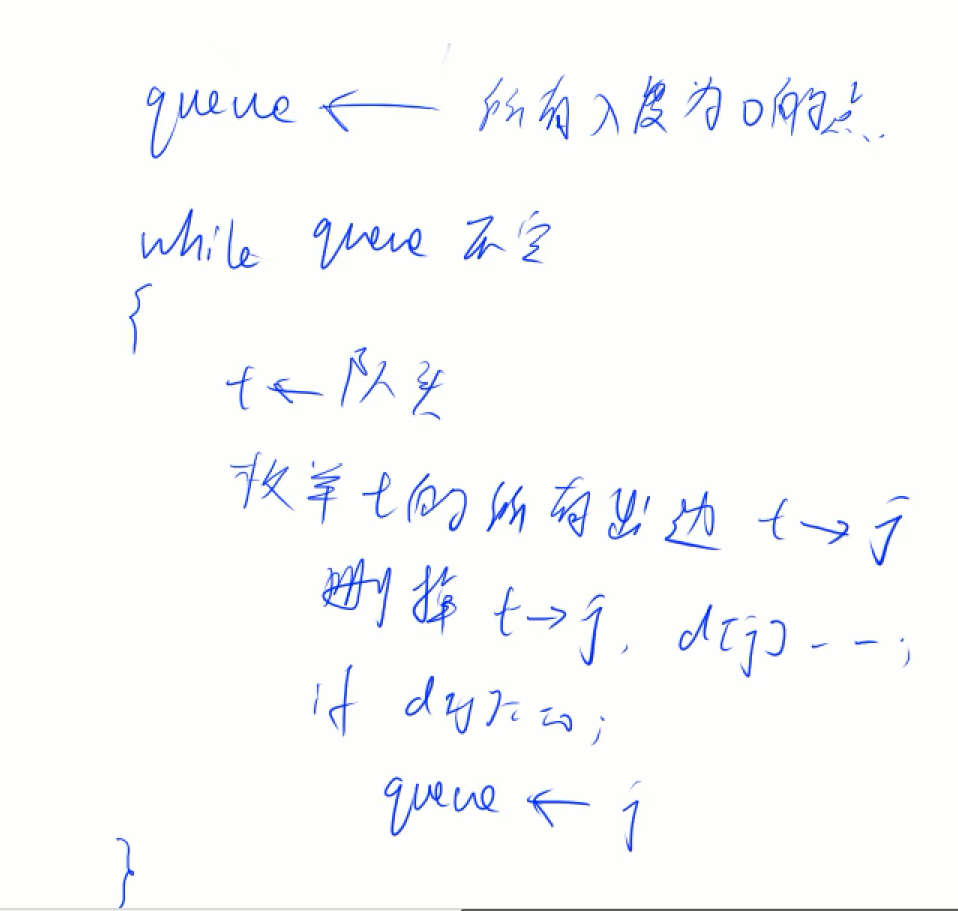 queue ← 所有入度为0的点.
while queue 不空
{
t ← 队头
枚举 t的所有出边 t→j
删掉 t→j, d[j]--;
if d[j]==0;
queue ← j
}